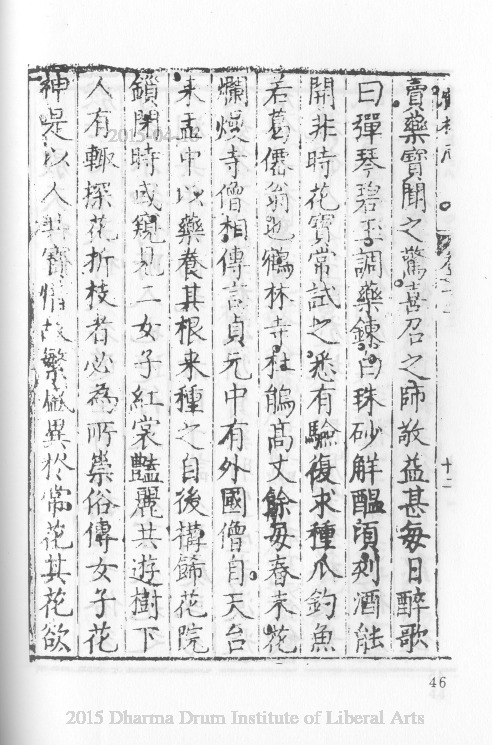 賣藥寶聞之驚喜召之師敬益甚每日醉歌
曰彈琴碧玉調藥鍊白珠砂解醖頃刻酒能
開非時花寶常試之悉有驗復求種瓜釣魚
若葛僊翁也鶴林寺杜鵑高丈餘每春末花
爛熳寺僧相傳言貞元中有外國僧自天台
来盂中以藥養其根来種之自後搆餙花院
鎖閉時或窺見二女子紅裳豔麗共遊樹下
人有輙採花折枝者必為所祟俗傳女子花
神是以人寶惜故繁盛異於常花其花欲
十二
46
2015 Dharma Drum Institute of Liberal Arts